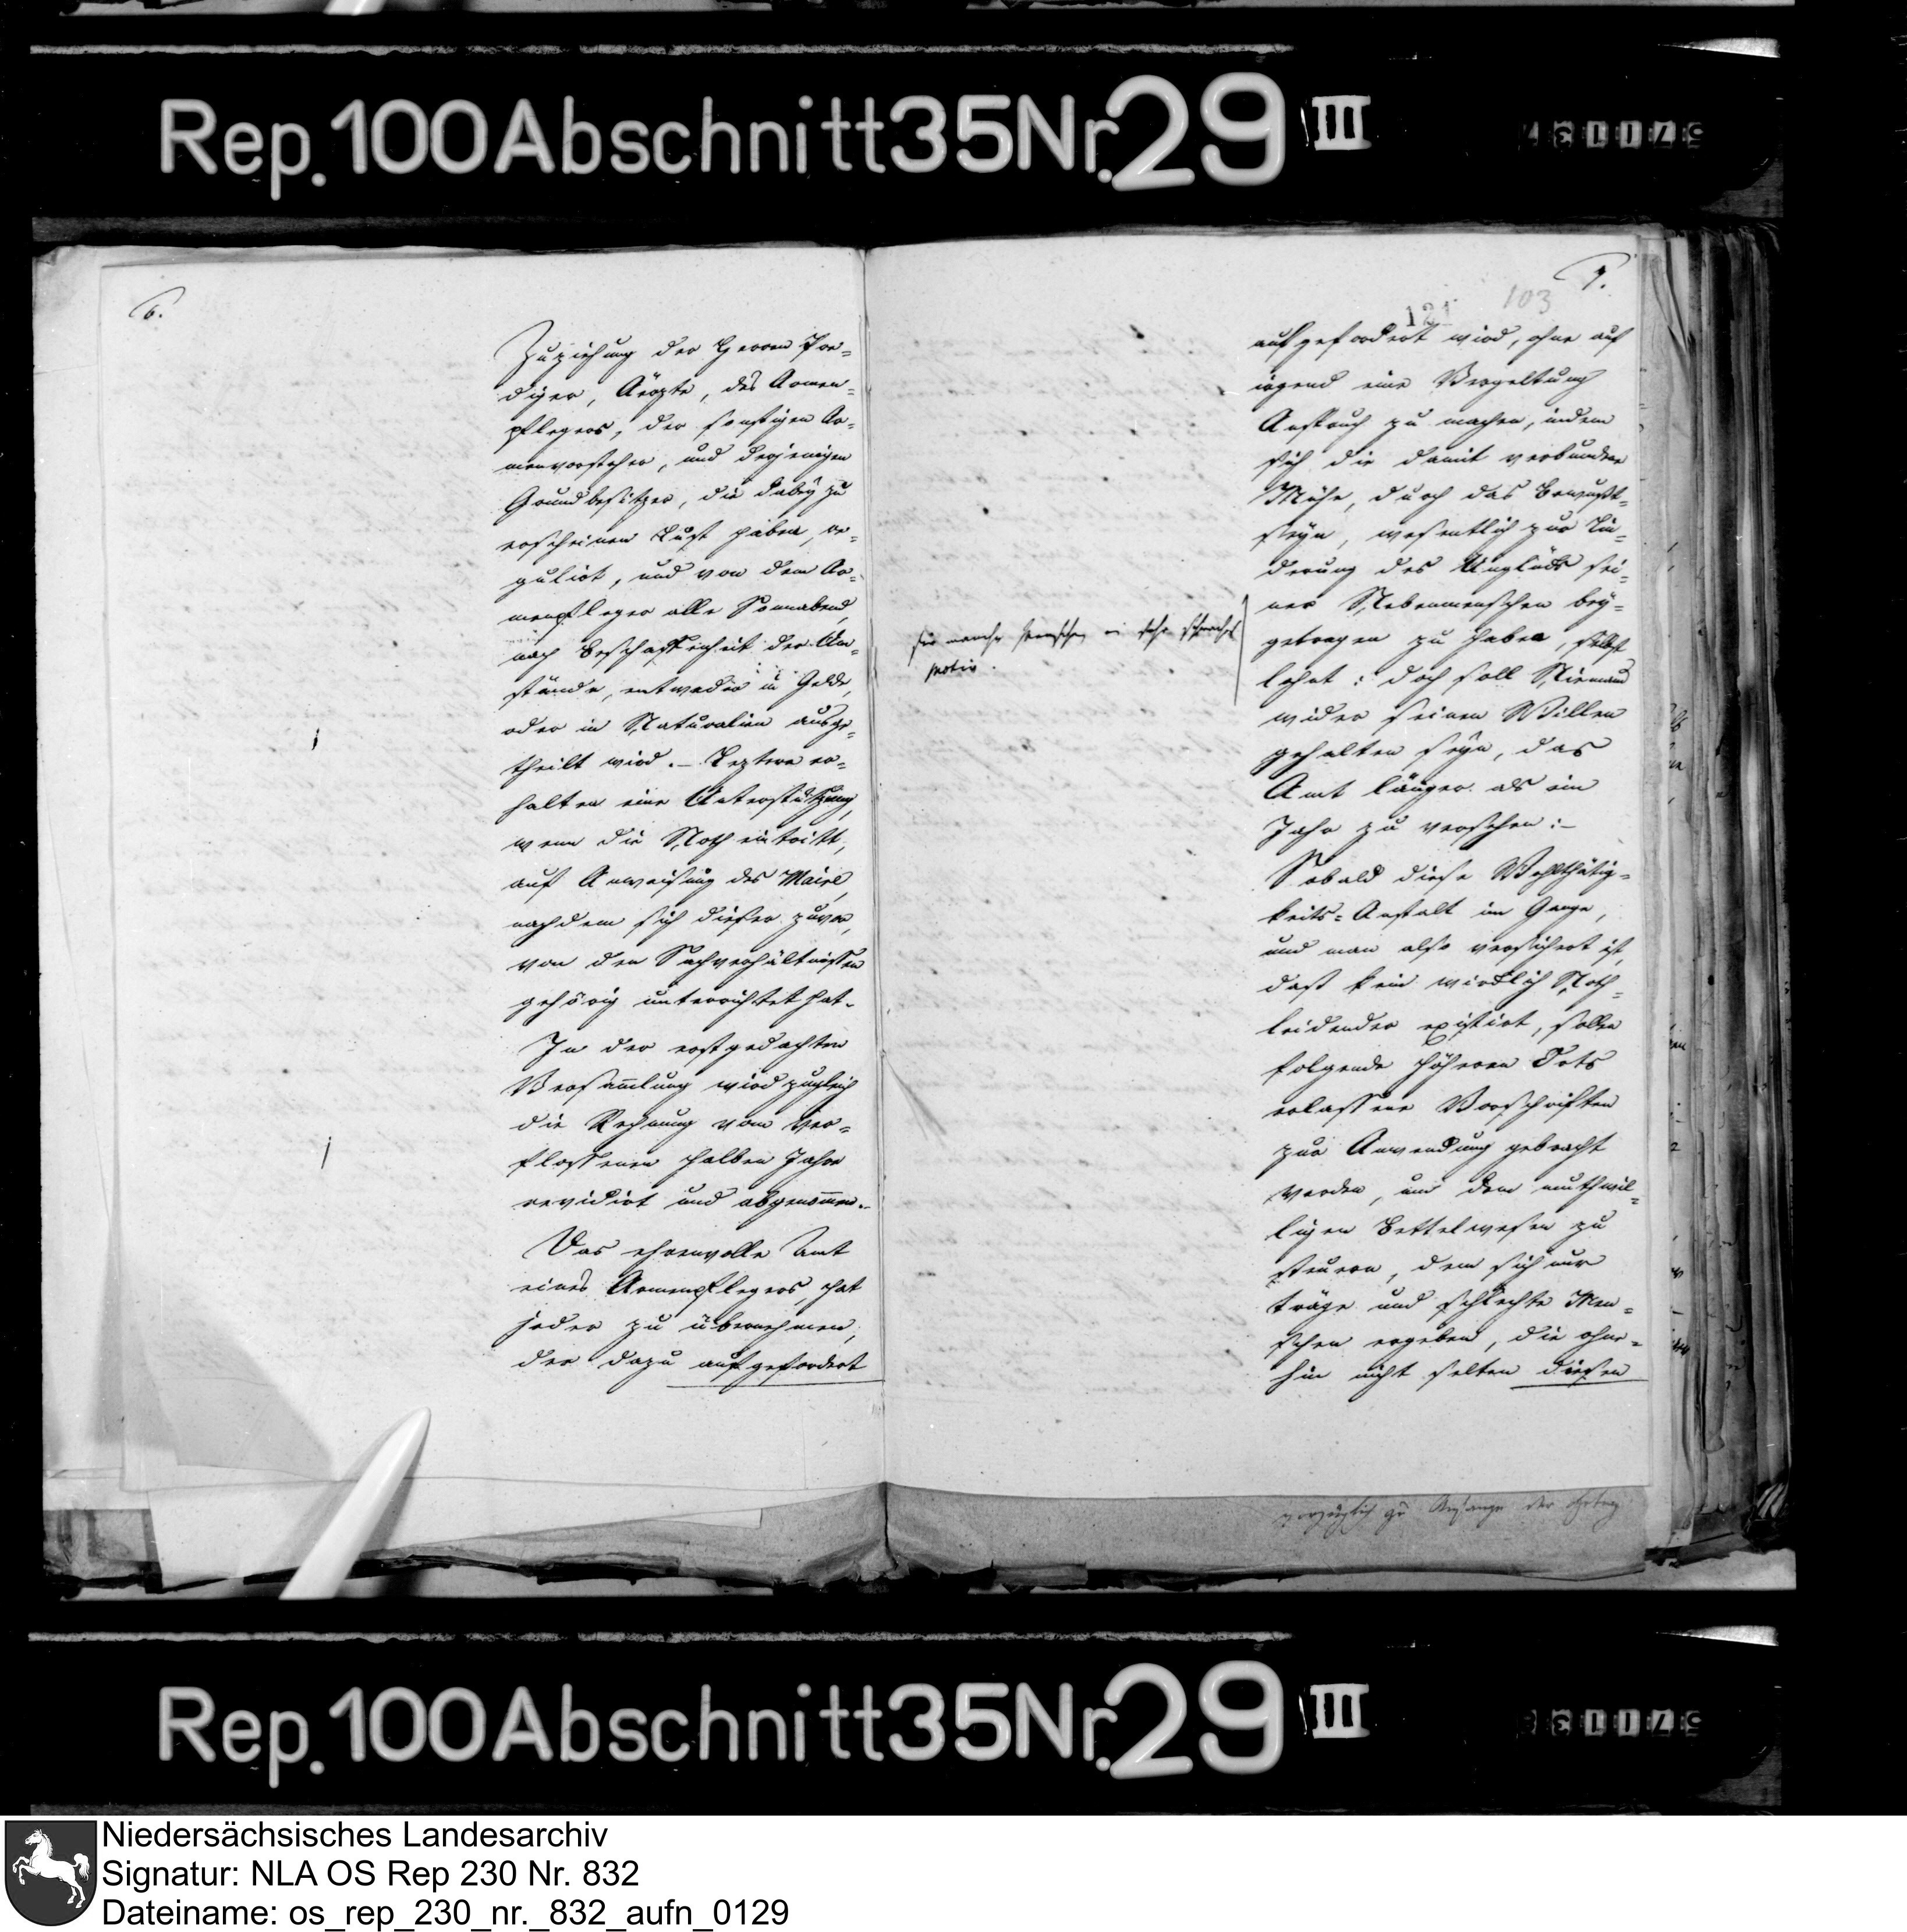 Rep. 100 Abschnitt 35 Nr. 29 III
6.
Zuziehung der Herren Pre=
diger, Aerzte, des Armen=
pflegers, der sonstigen Ar=
menvorsteher, und derjenigen
Grundbesitzer, die dabey zu
erscheinen Lust haben, re=
gulirt, und von dem Ar=
menpfleger alle Sonnabend,
nach Beschaffenheit der Um=
stände, entweder in Gelde,
oder in Naturalien ausge=
theilt wird. – Leztere er=
halten eine Unterstützung,
wenn die Noth eintritt,
auf Anweisung des Maire,
nachdem sich dieser zuvor,
von den Sachverhältnissen
gehörig unterrichtet hat.
In der erstgedachten
Versammlung wird zugleich
die Rechnung vom ver=
flossenen halben Jahre
revidirt und abgenommen.
Das ehrenvolle Amt
eines Armenpflegers, hat
jeder zu übernehmen,
der dazu aufgefordert
7.
103
121
aufgefordert wird, ohne auf
irgend eine Vergeltung
Anspruch zu machen, indem
sich die damit verbundene
Mühe, durch das Bewußt=
seyn, wesentlich zur Lin=
derung des Unglücks sei=
ner Nebenmenschen bey=
getragen zu haben, selbst
lohnt: doch soll Niemand
wider seinen Willen
gehalten seyn, das
Amt länger als ein
Jahr zu versehen: –
Sobald diese Wohlthätig=
keits=Anstalt im Gange,
und man also versichert ist,
daß kein wirklich Noth=
leidender existirt, sollen
folgende höheren Orts
erlassene Vorschriften
zur Anwendung gebracht
werden, um dem muthwil=
ligen Bettelwesen zu
steuern, dem sich nur
träge und schlechte Men=
schen ergeben, die ohne=
hin nicht selten diesen
für manche Menschen ein sehr schwaches
Motiv.
vorzüglich zu Anfange der
Rep. 100 Abschnitt 35 Nr. 29 III
Niedersächsisches Landesarchiv
Signatur: NLA OS Rep 230 Nr. 832
Dateiname: os_rep_230_nr._832_aufn_0129